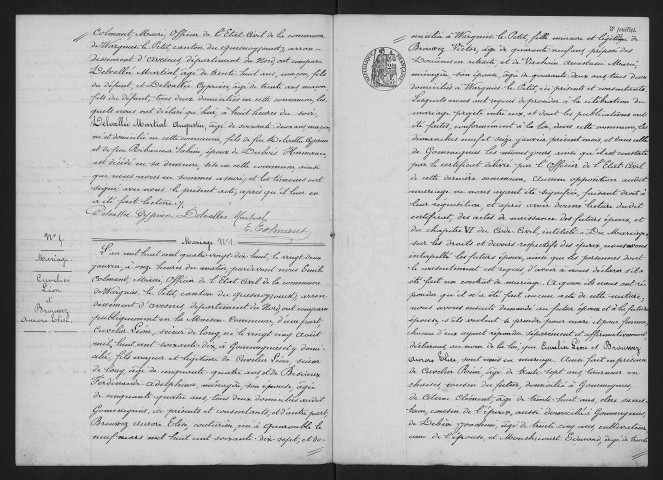 Colmant, Maire, Officier de l'Etat Civil de la commune
de Wargnies le Petit, canton du Quesnoy (ouest), arron-
dissement d'Avesnes, département du Nord, ont comparu
Delvallée Martial, âgé de trente huit ans, maçon, fils
du défunt, et Delvallée Cyprien, âgé de trente ans, maçon
fils du défunt, tous deux domiciliés en cette commune, les
quels nous ont déclaré qu'hier, à huit heures du soir,
Delvallée Martial Augustin, âgé de soixante deux ans, maçon,
né et domicilié en cette commune, fils de feu Delvallée
et de feu époux de
est décédé en sa demeure, sise en cette commune, ainsi
que nous nous en sommes assuré; et les témoins ont
signé avec nous le présent acte, après qu'il leur en
a été fait lecture.
Delvallée Cyprien Delvallée Martial
E. Colmant
N° 1.
Mariage
Cuvelier
Léon
et
Brouwez
Aurore Elise
Mariage N° 1.
L'an mil huit cent quatre vingt dix huit, le vingt deux
janvier, à onze heures du matin, pardevant nous Emile
Colmant, Maire, Officier de l'Etat Civil de la commune
de Wargnies le Petit, canton du Quesnoy (ouest), arron-
dissement d'Avesnes, département du Nord, ont comparu
publiquement en la Maison Commune, d'une part,
Cuvelier Léon, scieur de long, né le vingt cinq août
mil huit cent soixante dix, à Gommegnies et y domi-
cilié, fils majeur et légitime de Cuvelier Léon, scieur
de long, âgé de cinquante quatre ans, et de
Ferdinande Adolphine, ménagère, son épouse, âgée
de cinquante quatre ans, tous deux domiciliés audit
Gommegnies, ici présents et consentants, et d'autre part,
Brouwez Aurore Elise, couturière, née à Quarouble le
neuf mars mil huit cent soixante dix sept, et do-
2e feuillet.
miciliée à Wargnies le Petit, fille mineure et légitime de
Brouwez Victor, âgé de quarante neuf ans, préposé des
Douanes en retraite et de
ménagère, son épouse, âgée de quarante deux ans, tous deux
domiciliés à Wargnies le Petit, ici présents et consentants.
Lesquels nous ont requis de procéder à la célébration du
mariage projeté entre eux, et dont les publications ont
été faites, conformément à la loi, dans cette commune, les
dimanches neuf et seize janvier présent mois, et dans celle
de Gommegnies les mêmes jours ainsi qu'il est constaté
par le certificat délivré par l'Officier de l'Etat Civil
de cette dernière commune. Aucune opposition audit
mariage ne nous ayant été signifiée, faisant droit à
leur réquisition, et après avoir donné lecture dudit
certificat, des actes de naissance des futurs époux, et
du chapitre VI du Code Civil, intitulé: Du Mariage,
sur les droits et devoirs respectifs des époux, nous avons
interpellé les futurs époux, ainsi que les personnes dont
le consentement est requis d'avoir à nous déclarer s'il a
été fait un contrat de mariage. A quoi ils nous ont
répondu qu'il n'a été fait aucun acte de cette nature;
nous avons ensuite demandé au futur époux et à la future
épouse, s'ils veulent se prendre pour mari et pour femme;
chacun d'eux ayant répondu séparément et affirmativement,
déclarons, au nom de la loi, que Cuvelier Léon et Brouwez
Aurore Elise, sont unis en mariage. Aussi fait en présence
de Cuvelier âgé de trente sept ans, tourneur en
chaises, cousin du futur, domicilié à Gommegnies,
de Clément, âgé de trente huit ans, clerc
cousin de l'époux, aussi domicilié à Gommegnies,
de âgé de trente cinq ans, cultivateur
ami de l'épouse, et Edmond, âgé de trente